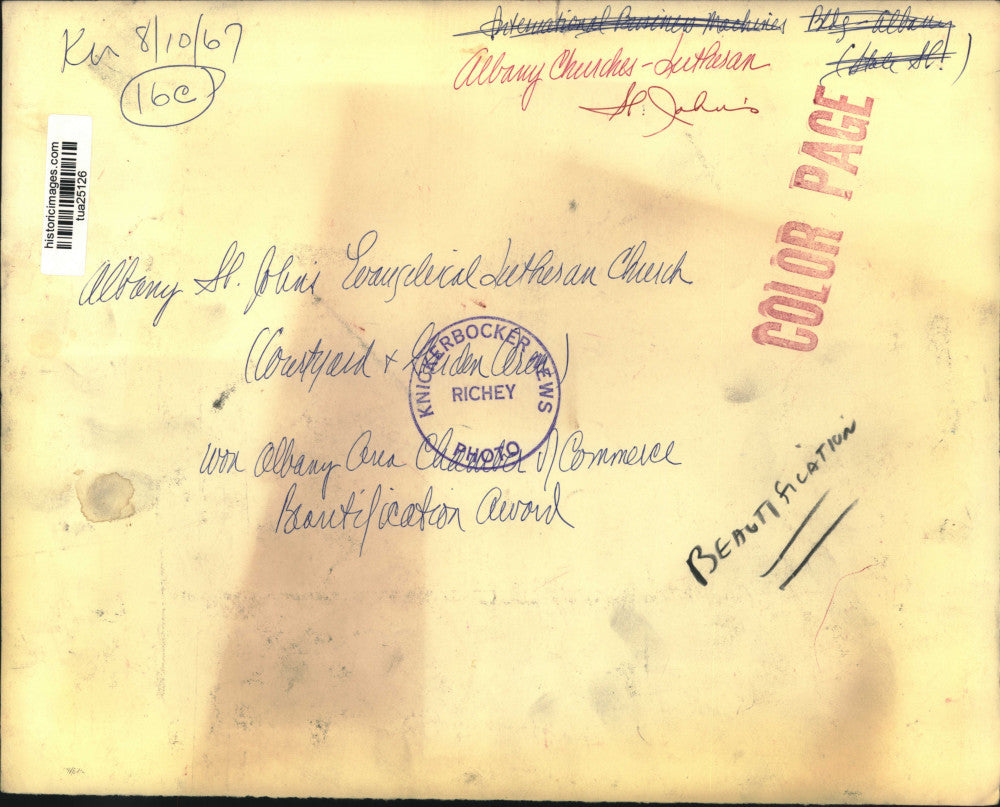 Kn 8/10/67
16c
International Business Machines Bldg - Albany
(State St.)
Albany Churches - Lutheran
St. John's
COLOR PAGE
historicimages.com
tua25126
Albany St. Johns Evangelical Lutheran Church
(Courtyard + Garden Area)
KNICKERBOCKER NEWS
RICHEY
PHOTO
won Albany Area Chamber of Commerce
Beautification Award
BEAUTIFICATION